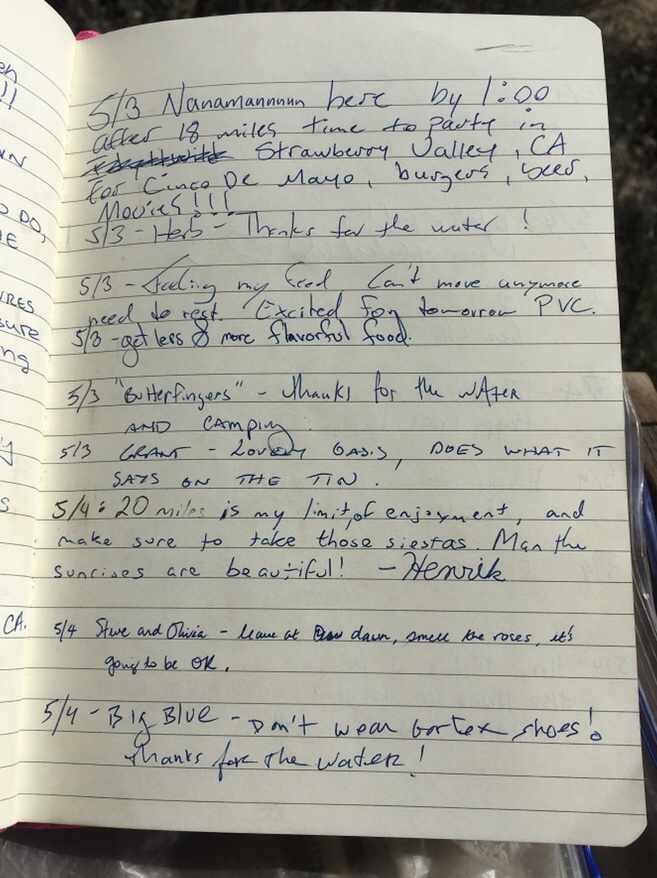 en
!!
5/3 Nanamannnnn here by 1:00
after 18 miles time to party in
Strawberry Valley, CA
WN
for Cinco De Mayo, burgers, beer,
Movies!!!
O DO,
5/3 - Herb - Thanks for the water!
E
5/3 - my Can't move anymore
URES
need to rest. Excited for tomorrow PVC.
sure
5/3 - get less & more flavorful food.
ng
5/3 "Butterfingers" - thanks for the wAter
AND camping
y
5/3 GRANT - Lovely OASIS, DOES WHAT IT
SAYS ON THE TIN.
s
5/4: 20 miles is my limit of enjoyment, and
make sure to take those siestas. Man the
sunrises are beautiful! - Henrik
CA.
5/4 Steve and Olivia - leave at dawn, smell the roses, it's
going to be OK.
5/4 - Big Blue - Don't wear Gortex shoes!
thanks for the water!